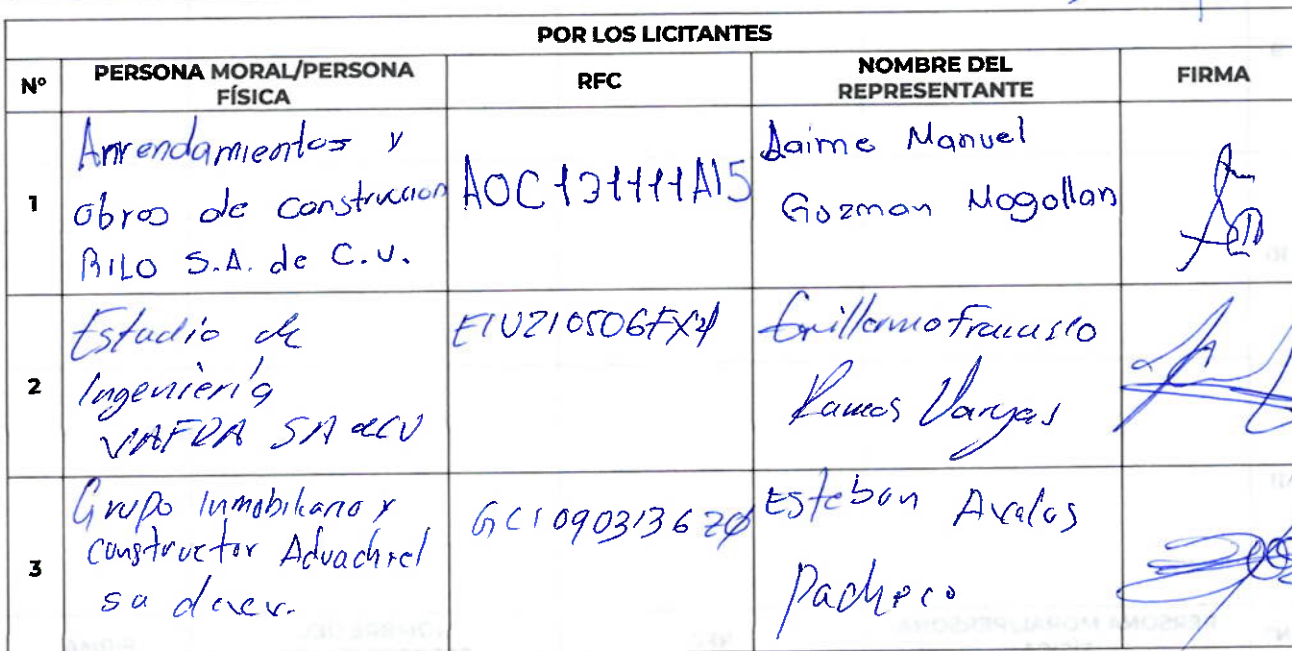 POR LOS LICITANTES
N° PERSONA MORAL/PERSONA FÍSICA RFC NOMBRE DEL REPRESENTANTE FIRMA
1
Arrendamientos y
obras de construccion
RILO S.A. de C.V.
AOC131111A15
Jaime Manuel
Guzman Mogollon
2
Estudio de
Ingeniería
SA de CV
Guillermo Francisco
Ramos Vargas
3
Grupo Inmobiliario y
constructor
sa de cv.
Esteban Avalos
Pacheco